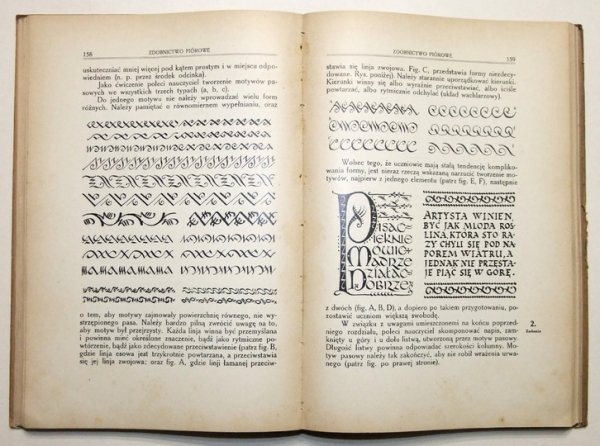 158
ZDOBNICTWO PIÓROWE
uskuteczniać mniej więcej pod kątem prostym i w miejscu odpo-
wiedniem (n. p. przez środek odcinka).
Jako ćwiczenie poleci nauczyciel tworzenie motywów pa-
sowych we wszystkich trzech typach (a, b, c).
Do jednego motywu nie należy wprowadzać wielu form
różnych. Należy pamiętać o równomiernem wypełnianiu, oraz
o tem, aby motywy zajmowały powierzchnię równego, nie wy-
strzępionego pasa. Należy bardzo pilną zwrócić uwagę na to,
aby motyw był przejrzysty. Każda linja winna być przemyślana
i powinna mieć określone znaczenie, bądź jako rytmiczne po-
wtórzenie, bądź jako zdecydowane przeciwstawienie (patrz fig. B,
gdzie linja esowa jest trzykrotnie powtarzana, a przeciwstawia
się jej linja zwojowa; oraz fig. A, gdzie linji łamanej przeciw-
ZDOBNICTWO PIÓROWE
159
stawia się linja zwojowa. Fig. C, przedstawia formy niezdecy-
dowane. Rys. poniżej). Należy starannie uporządkować kierunki.
Kierunki winny się albo wyraźnie przeciwstawiać, albo ściśle
powtarzać, albo rytmicznie odchylać (układ wachlarzowy).
Wobec tego, że uczniowie mają stałą tendencję kompliko-
wania formy, jest nieraz rzeczą wskazaną narzucić tworzenie mo-
tywów, najpierw z jednego elementu (patrz fig. E, F), następnie
PISAĆ
PIĘKNIE
MÓWIĆ
MĄDRZE
DZIAŁAĆ
DOBRZE
ARTYSTA WINIEN
BYĆ JAK MŁODA ROŚ-
LINA, KTÓRA STO RA-
ZY CHYLI SIĘ POD NA-
POREM WIATRU, A
JEDNAK NIE PRZESTA-
JE PIĄĆ SIĘ W GÓRĘ.
z dwóch (fig. A, B, D), a dopiero po takiem przygotowaniu, po-
zostawić uczniom większą swobodę.
W związku z uwagami umieszczonemi na końcu poprzed-
niego rozdziału, poleci nauczyciel skomponować napis, zam-
knięty u góry i u dołu listwą, utworzoną przez motyw pasowy.
Długość listwy powinna odpowiadać szerokości kolumny. Mo-
tyw pasowy należy tak zakończyć, aby nie robił wrażenia urwa-
nego (patrz fig. po prawej stronie).
2.
Zadanie